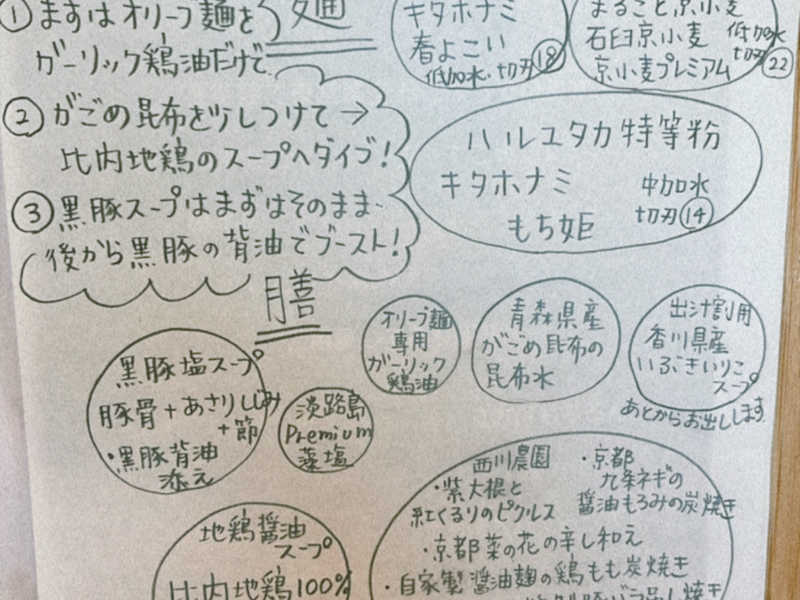 ① まずはオリーブ麺を
ガーリック鶏油だけで
② がごめ昆布を少しつけて→
比内地鶏のスープへダイブ!
③ 黒豚スープはまずはそのまま
後から黒豚の背油でブースト!
麺
キタホナミ
春よこい
低加水・切刃⑱
まるごと京小麦
石臼京小麦
京小麦プレミアム
低加水
切刃㉒
ハルユタカ特等粉
キタホナミ
もち姫
中加水
切刃⑭
膳
オリーブ麺
専用
ガーリック
鶏油
青森県産
がごめ昆布の
昆布水
出汁割用
香川県産
いぶきいりこ
スープ
あとからお出しします
黒豚塩スープ
豚骨+あさりしじみ
+節
・黒豚背油
添え
淡路島
Premium
藻塩
地鶏醤油
スープ
比内地鶏100%
西川農園
・紫大根と
紅くるりのピクルス
・京都
九条ネギの
醤油もろみの炭焼き
・京都菜の花の辛し和え
・自家製醤油麹の鶏もも炭焼き